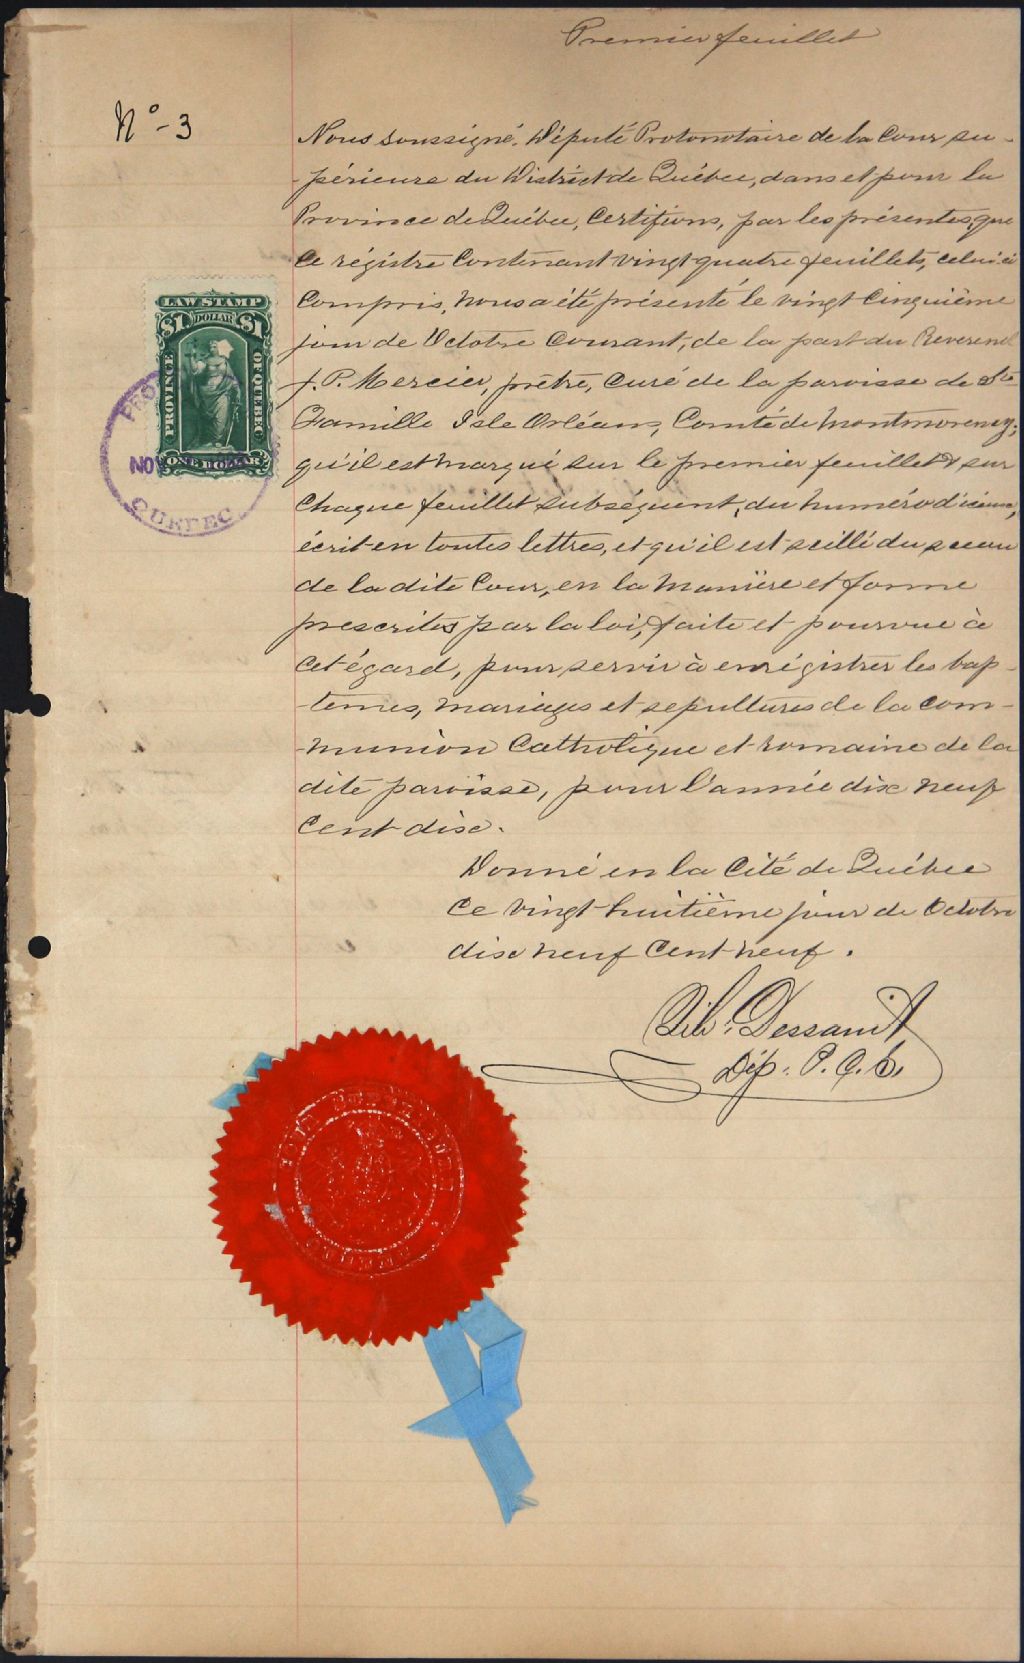 Premier feuillet
No - 3
Nous soussigné, Député Protonotaire de la Cour su-
-périeure du District de Québec, dans et pour la
Province de Québec, Certifions, par les présentes, que
ce régistre contenant vingt quatre feuillets, celui ci
compris, nous a été présenté le vingt cinquième
jour de Octobre courant, de la part du Reverend
J. P. Mercier, prêtre, Curé de la paroisse de Ste
Famille Isle Orléans, Comté de Montmorency;
qu'il est marqué sur le premier feuillet & sur
chaque feuillet subséquent, du numéro d'iceux,
écrit en toutes lettres, et qu'il est scillé du sceau
de la dite Cour, en la manière et forme
prescrites par la loi, faite et pourvue à
cet égard, pour servir à enrégistrer les bap-
-temes, mariages et sepultures de la com-
-munion Catholique et romaine de la
dite paroisse, pour l'année dix neuf
cent dix.
Donné en la Cité de Québec
ce vingt huitième jour de Octobre
dix neuf cent neuf.
Dessault
Dép. P. C. S.
LAW STAMP
$1 DOLLAR $1
PROVINCE OF QUEBEC
ONE DOLLAR
NOV
QUEBEC